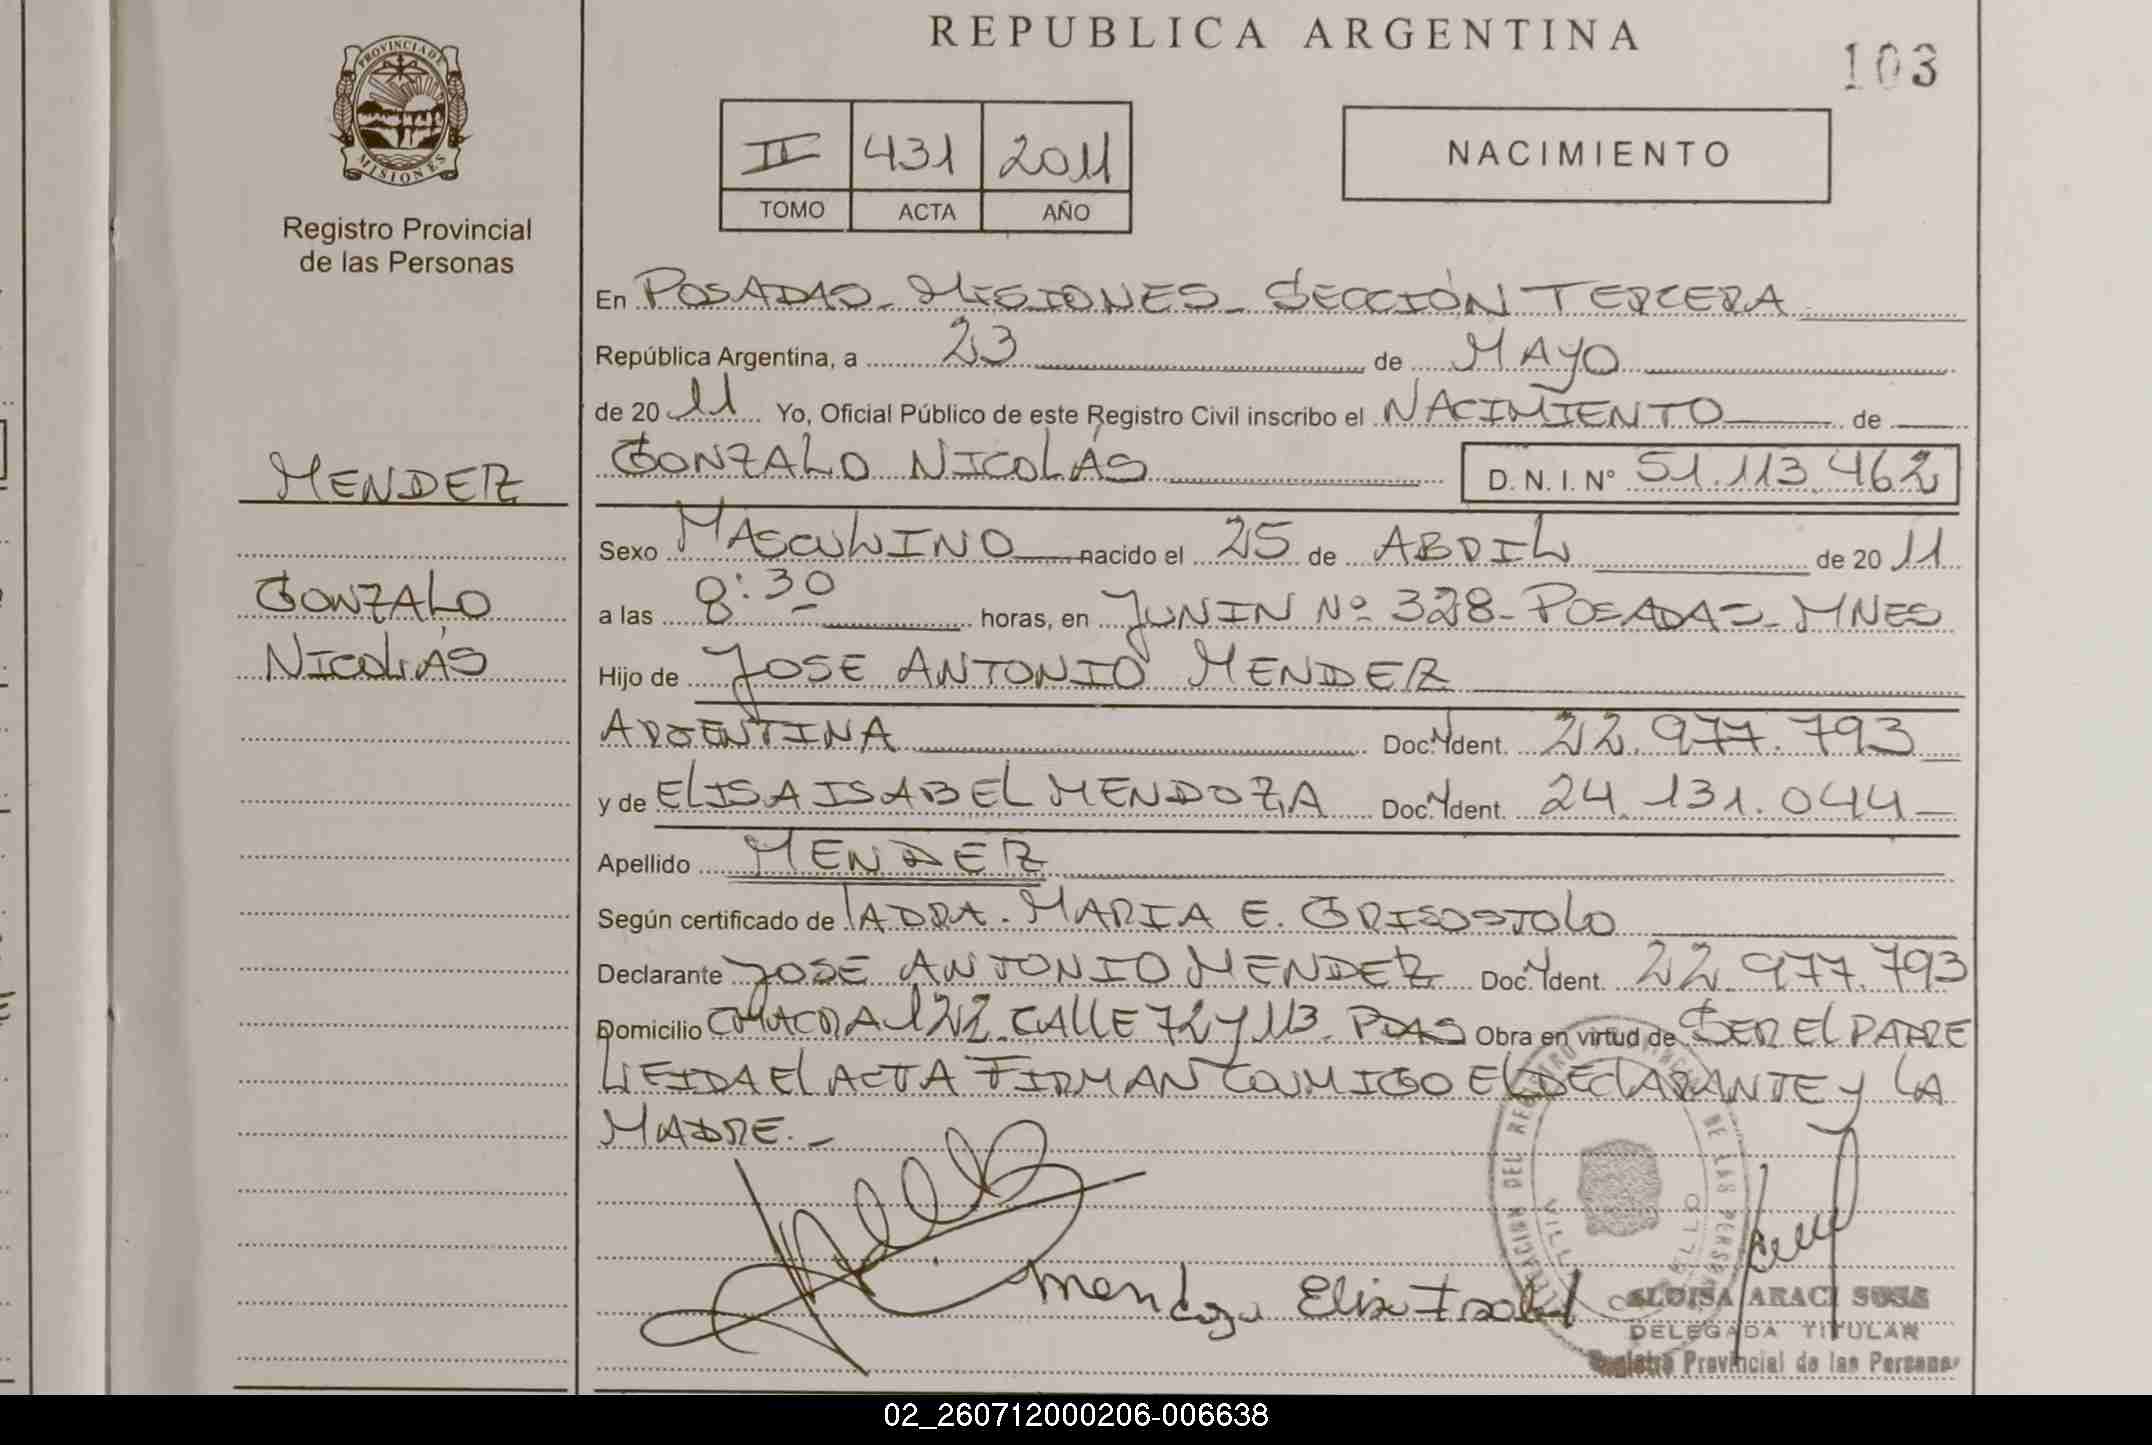 REPUBLICA ARGENTINA
103
PROVINCIA DE
MISIONES
Registro Provincial
de las Personas
II 431 2011
TOMO ACTA AÑO
NACIMIENTO
En POSADAS - MISIONES - SECCIÓN TERCERA
República Argentina, a 23 de MAYO
de 20 11 Yo, Oficial Público de este Registro Civil inscribo el NACIMIENTO de
GONZALO NICOLÁS D. N. I. Nº 51.113.462
MENDEZ
GONZALO
NICOLÁS
Sexo MASCULINO nacido el 25 de ABRIL de 20 11
a las 8:30 horas, en JUNIN Nº 328 - POSADAS - MNES
Hijo de JOSE ANTONIO MENDEZ
ARGENTINA Doc. Ydent. 22.977.793
y de ELISA ISABEL MENDOZA Doc. Ydent. 24.131.044 -
Apellido MENDEZ
Según certificado de LA DRA. MARIA E. GRISOSTOLO
Declarante JOSE ANTONIO MENDEZ Doc. Ydent. 22.977.793
Domicilio CHACRA 122 CALLE 72 Y 113 - PDAS Obra en virtud de SER EL PADRE
LEIDA EL ACTA FIRMAN CONMIGO EL DECLARANTE Y LA
MADRE. -
Mendoza Elisa Isabel
ALOISA ARACI SOSA
DELEGADA TITULAR
Registro Provincial de las Personas
02_260712000206-006638